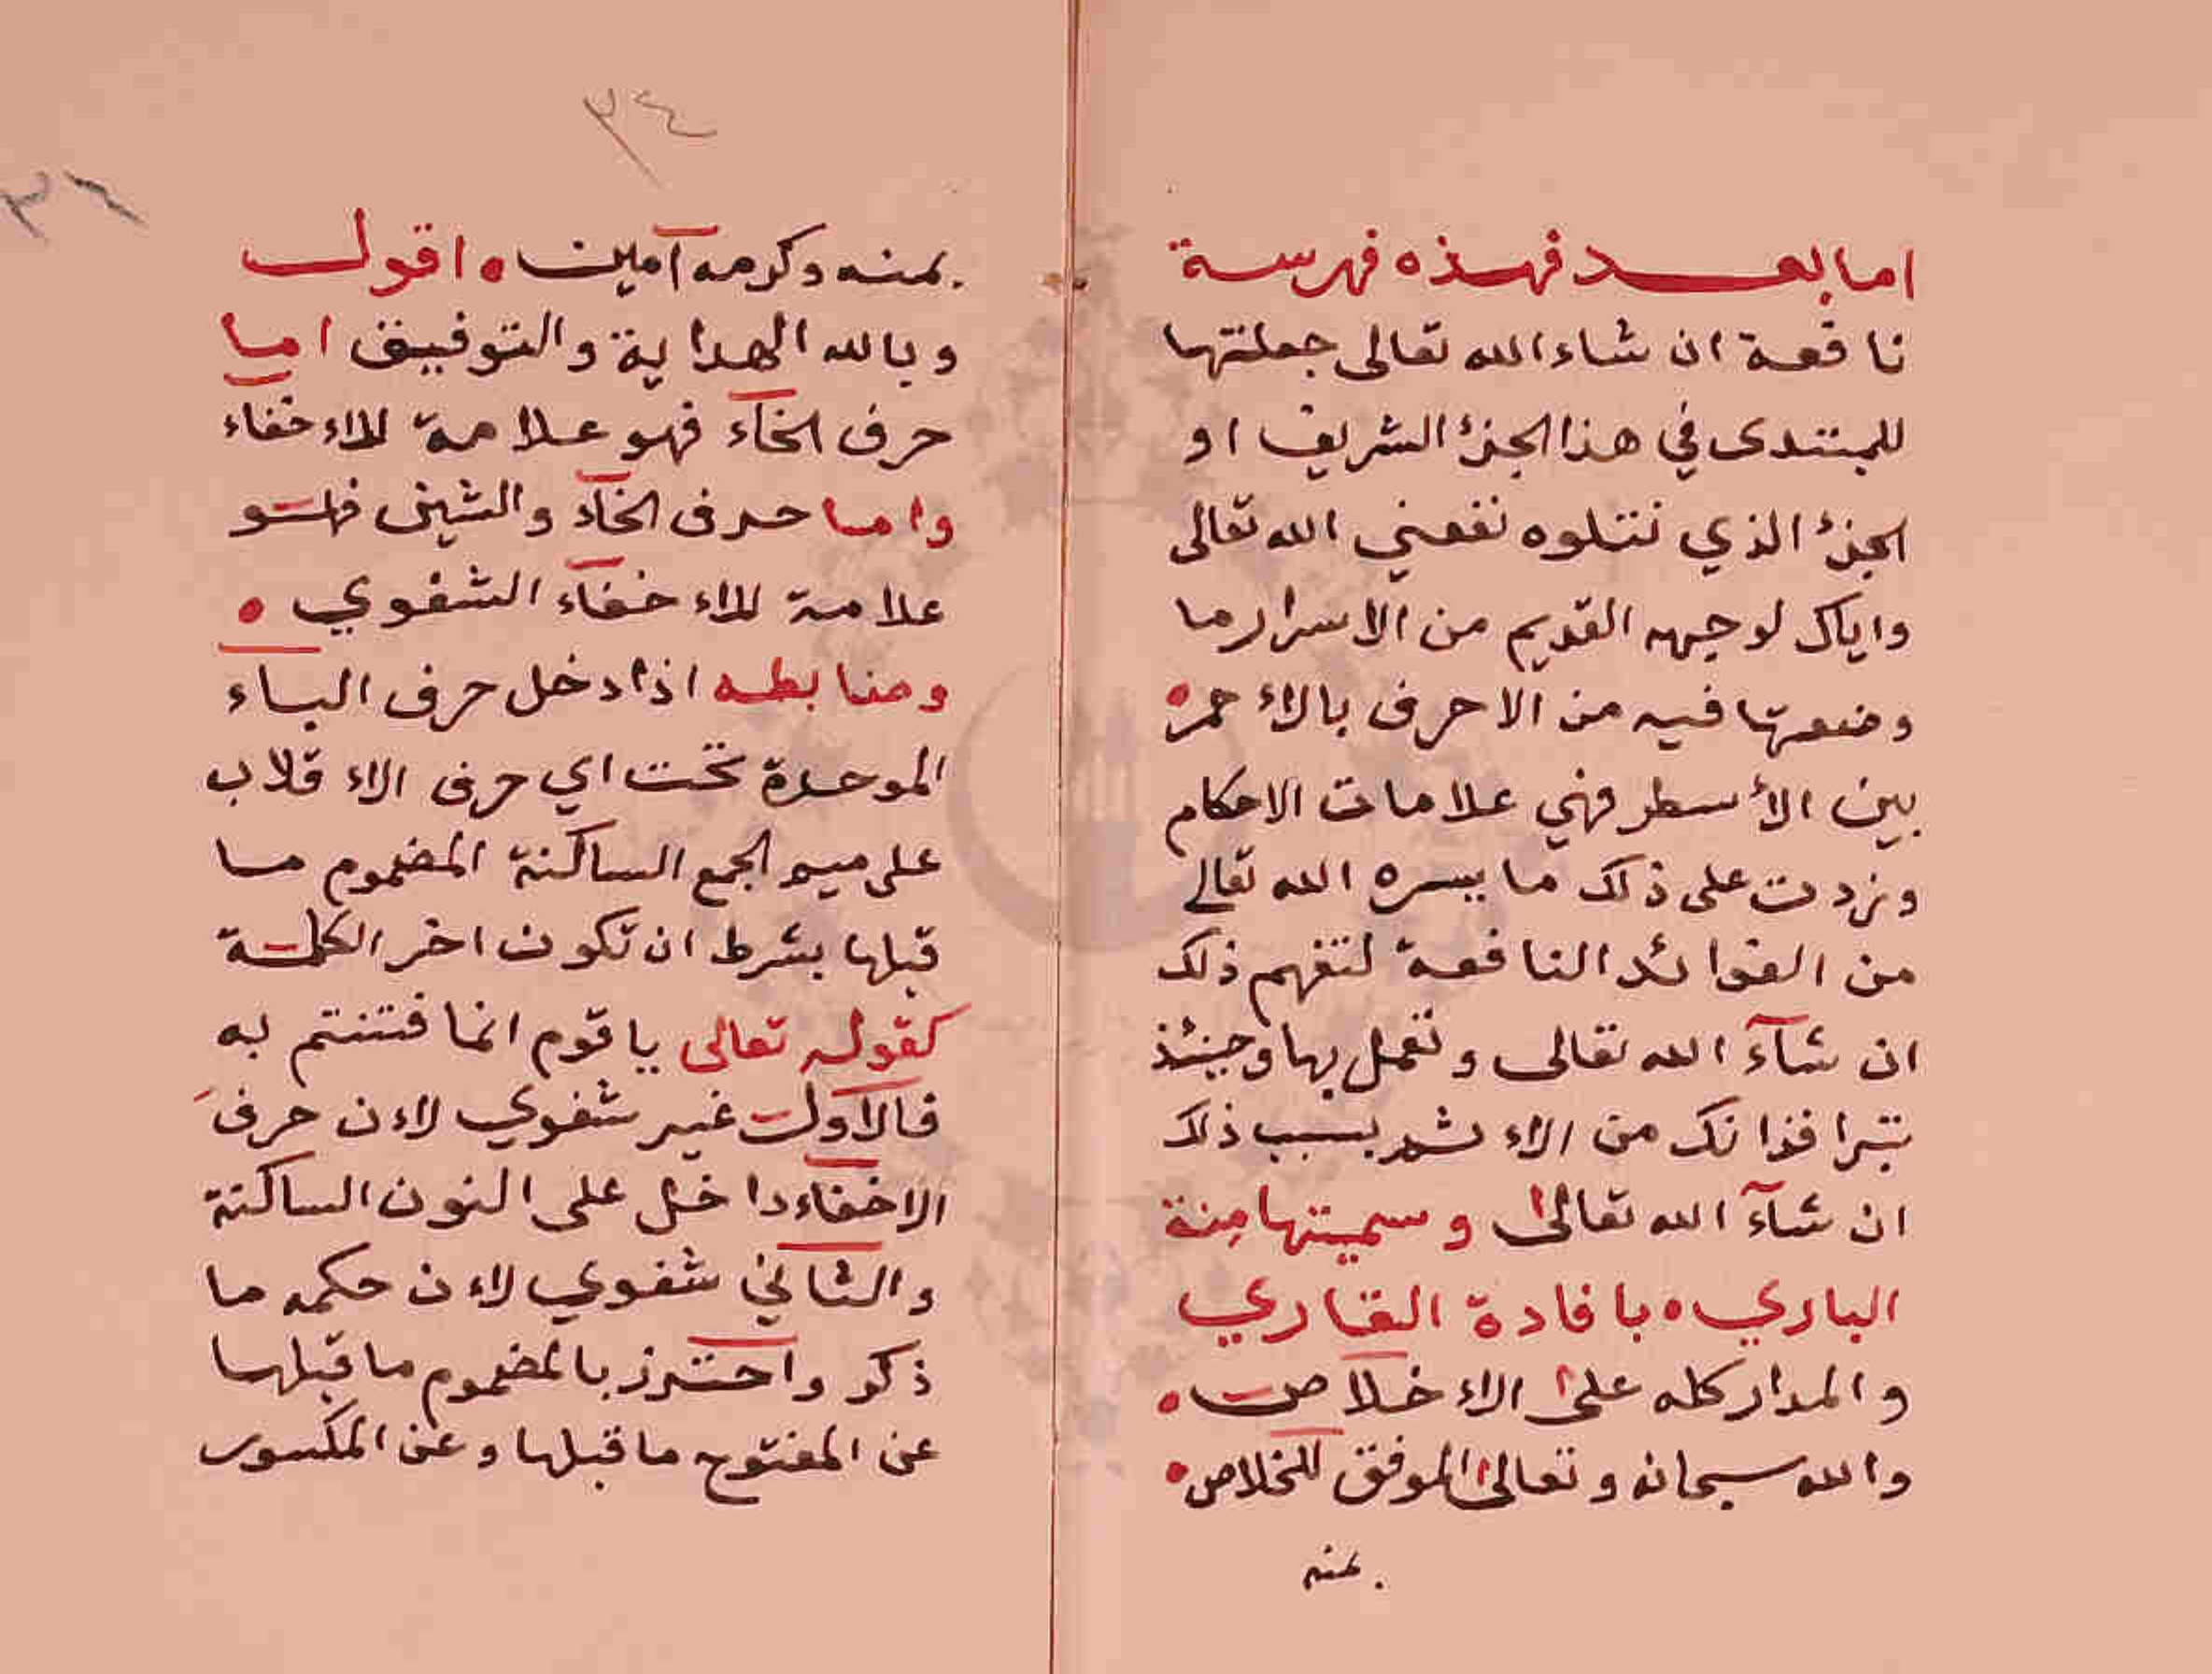 اما بعد فهذه فهرسة
نافعة ان شاء الله تعالى جعلتها
للمبتدى في هذا الجزؤ الشريف او
الجزؤ الذي نتلوه نفعني الله تعالى
واياك لوجهه القديم من الاسرار ما
وضعتها فيه من الاحرف بالاءحمر
بين الأسطر فهي علامات الاحكام
وزدت على ذلك ما يسره الله تعالى
من الفوائد النافعة لتفهم ذلك
ان شآء الله تعالى وتعمل بها وحينئذ
تتبرا من الاءثم بسبب ذلك
ان شآء الله تعالى وسميتها مِنة
الباري ۰ بافادة القاري
والمدار كله على الاءخلاص ۰
والله سبحانه وتعالى الموفق للخلاص ۰
بمنه
٢٤
٢٦
بمنه وكرمه آمين ۰ اقول
وبالله الهداية والتوفيق اما
حرف الخآء فهو علامة للاءخفاء
واما حرف الخآء والشين فهو
علامة للاءخفاء الشفوي ۰
وضابطه اذا دخل حرف الباء
الموحدة تحت اي حرف الاءقلاب
على ميم الجمع الساكنة المضموم ما
قبلها بشرط ان تكون اخر الكلمة
كقوله تعالى يا قوم انما فتنتم به
فالاول غير شفوي لاءن حرف
الاخفاء داخل على النون الساكنة
والثاني شفوي لاءن حكمه ما
ذكر واحترز بالمضموم ما قبلها
عن المفتوح ما قبلها وعن المكسور